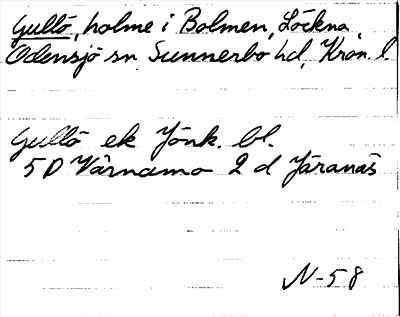 Gullö, holme i Bolmen, Löckna,
Odensjö sn Sunnerbo hd, Kron. l.
Gullö ek Jönk. bl.
5D Värnamo 2 d Järanäs
N-58